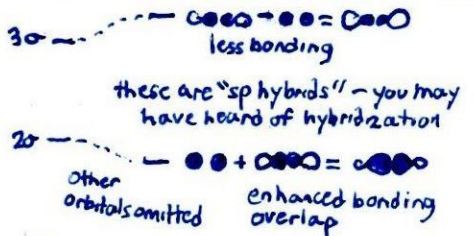 3σ
less bonding
these are "sp hybrids" - you may
have heard of hybridzation
2σ
other
orbitals omitted
enhanced bonding
overlap